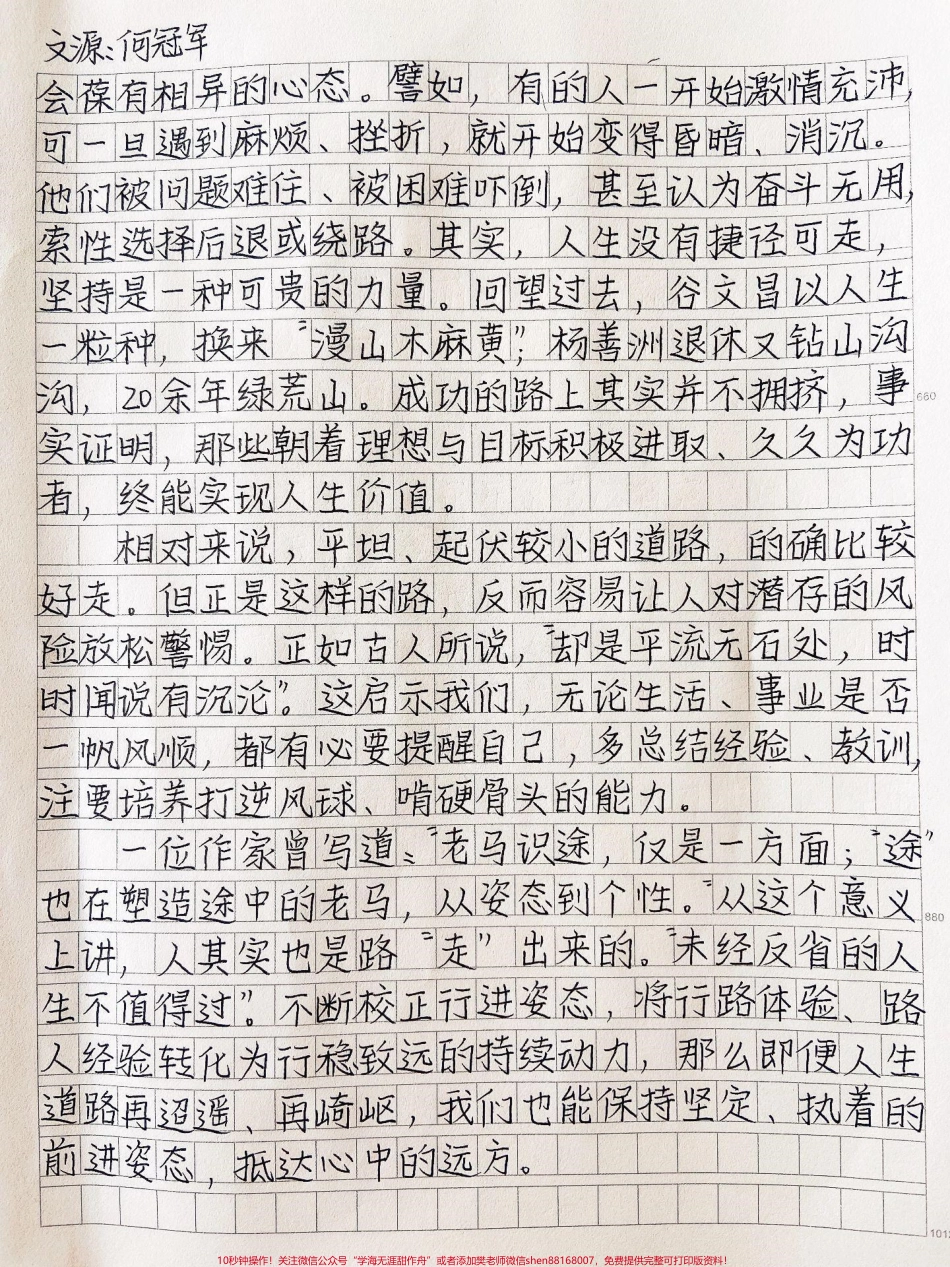 文源:何冠军
会葆有相异的心态。譬如,有的人一开始激情充沛,
可一旦遇到麻烦、挫折,就开始变得昏暗、消沉。
他们被问题难住、被困难吓倒,甚至认为奋斗无用,
索性选择后退或绕路。其实,人生没有捷径可走,
坚持是一种可贵的力量。回望过去,谷文昌以人生
一粒种,换来“漫山木麻黄”;杨善洲退休又钻山沟
沟,20余年绿荒山。成功的路上其实并不拥挤,事
660
实证明,那些朝着理想与目标积极进取、久久为功
者,终能实现人生价值。
相对来说,平坦、起伏较小的道路,的确比较
好走。但正是这样的路,反而容易让人对潜存的风
险放松警惕。正如古人所说,“却是平流无石处,时
时闻说有沉沦”。这启示我们,无论生活、事业是否
一帆风顺,都有必要提醒自己,多总结经验、教训,
注要培养打逆风球、啃硬骨头的能力。
一位作家曾写道:“老马识途,仅是一方面;“途”
也在塑造途中的老马,从姿态到个性。“从这个意义
880
上讲,人其实也是路“走”出来的。“未经反省的人
生不值得过”。不断校正行进姿态,将行路体验、路
人经验转化为行稳致远的持续动力,那么即便人生
道路再迢遥、再崎岖,我们也能保持坚定、执着的
前进姿态,抵达心中的远方。
1012
10秒钟操作!关注微信公众号“学海无涯甜作舟”或者添加樊老师微信shen88168007,免费提供完整可打印版资料!